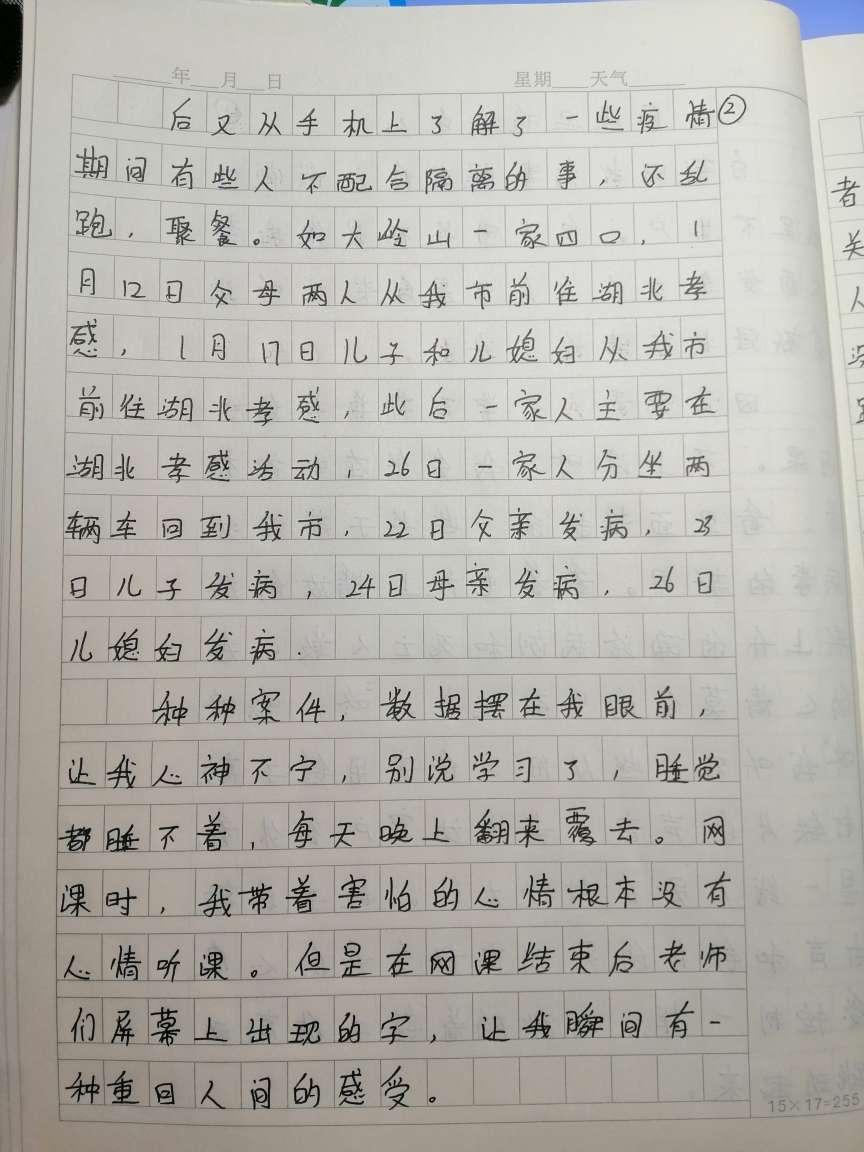 年 月 日 星期 天气
后又从手机上了解了一些疫情②
期间有些人不配合隔离的事，还乱
跑，聚餐。如大岭山一家四口，1
月12日父母两人从我市前往湖北孝
感，1月17日儿子和儿媳妇从我市
前往湖北孝感，此后一家人主要在
湖北孝感活动，26日一家人分坐两
辆车回到我市，22日父亲发病，23
日儿子发病，24日母亲发病，26日
儿媳妇发病.
种种案件，数据摆在我眼前，
让我心神不宁，别说学习了，睡觉
都睡不着，每天晚上翻来覆去。网
课时，我带着害怕的心情根本没有
心情听课。但是在网课结束后老师
们屏幕上出现的字，让我瞬间有一
种重回人间的感受。
15×17=255
者
关
人